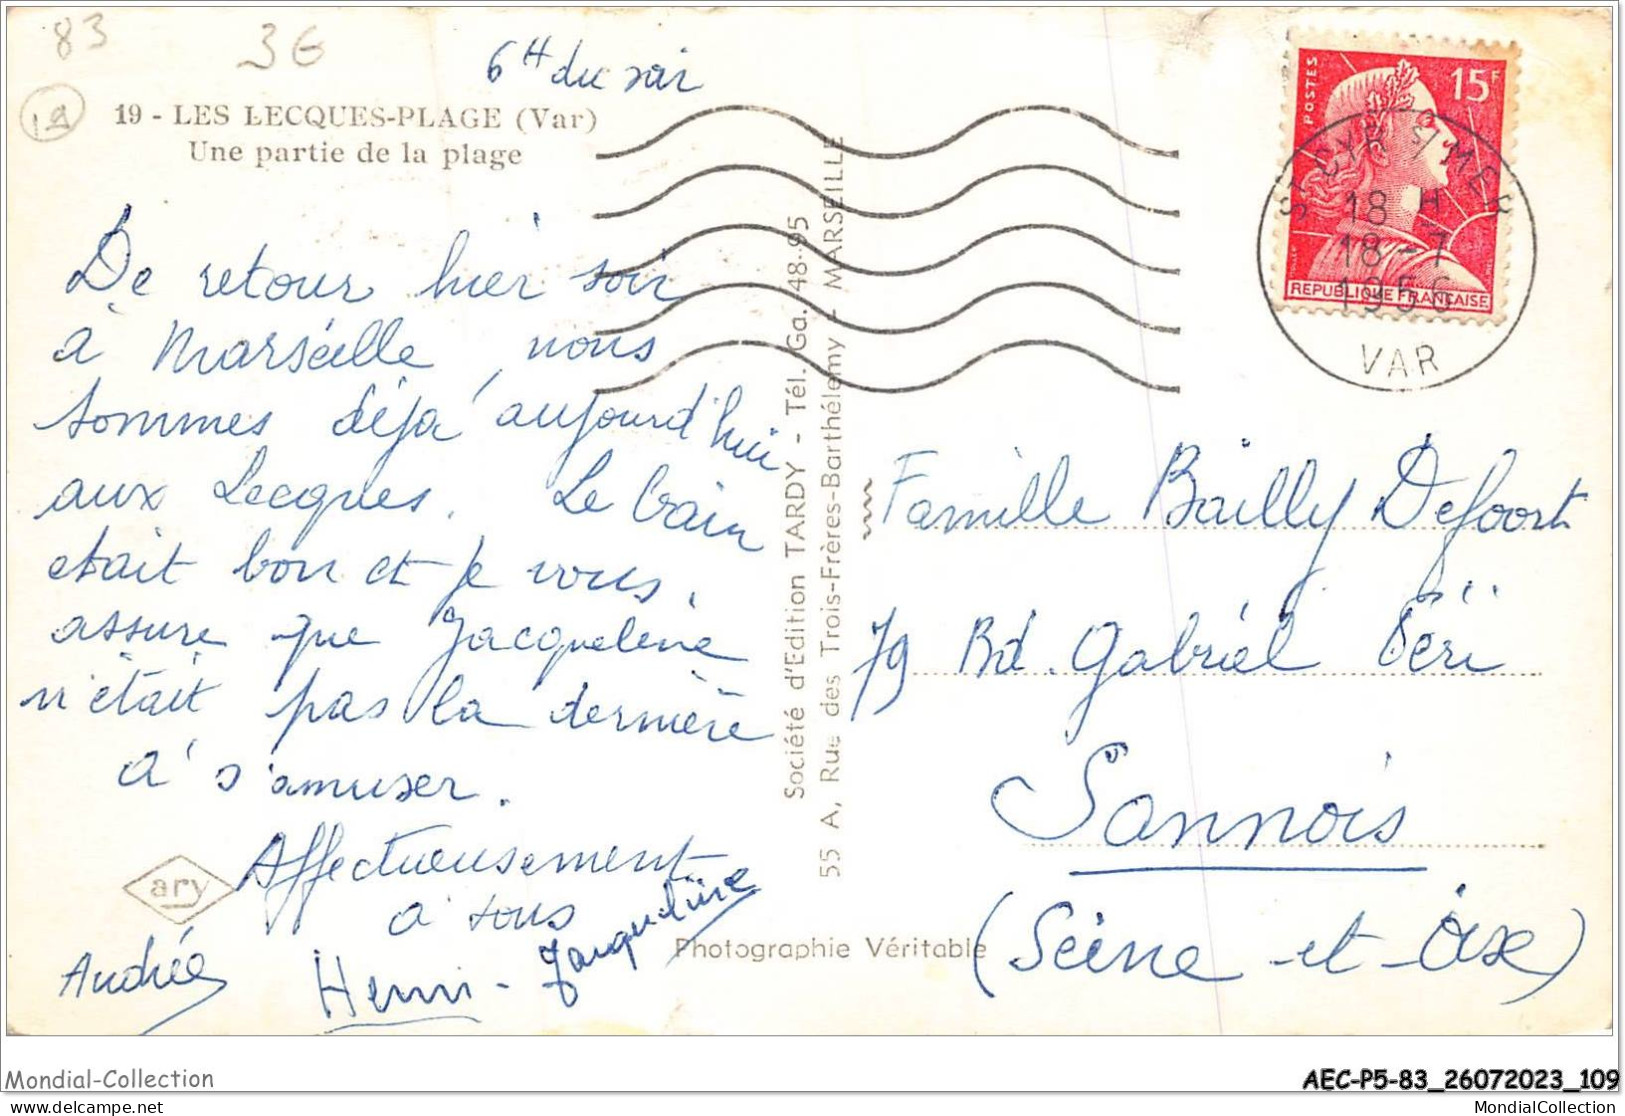 83
3€
19
6H du soir
19 - LES LECQUES-PLAGE (Var)
Une partie de la plage
De retour hier soir
à Marseille, nous
sommes déjà aujourd'hui
aux Lecques. Le bain
était bon et je vous
assure que Jacqueline
n'était pas la dernière
à s'amuser.
Affectueusement
à tous
Andrée
Henri - Jacqueline
ary
Société d'Edition TARDY - Tél. Ga. 48-95
55 A, Rue des Trois-Frères-Barthélemy - MARSEILLE
Photographie Véritable
POSTES
15F
REPUBLIQUE FRANÇAISE
ST CYR S/ MER
18 H
18 - 7
1956
VAR
Famille Bailly Defoort
79 Bd. Gabriel Péri
Sannois
(Seine-et-Oise)
Mondial-Collection
AEC-P5-83_26072023_109
mondial-collection
MondialCollection